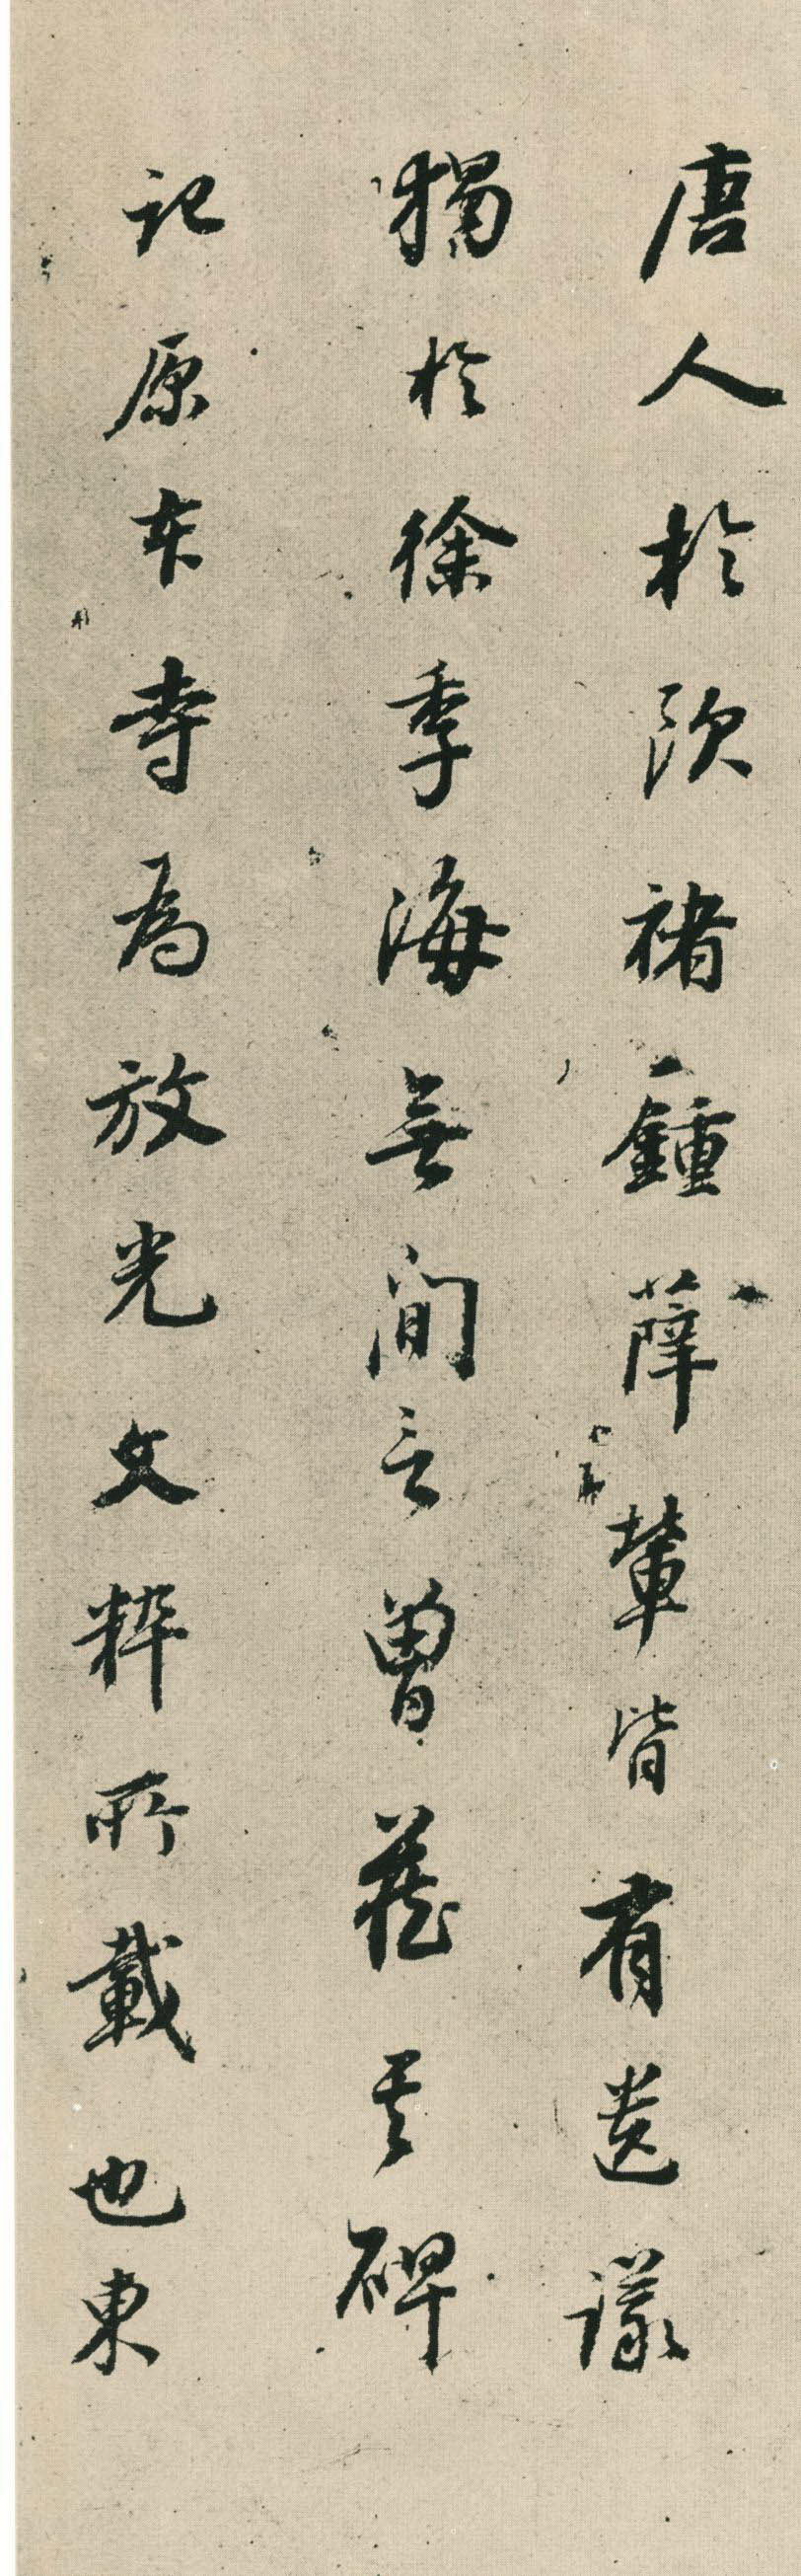 唐人於欧褚鍾薛輩皆有遗議
獨於徐季海無間言曾蔵其碑
記原本寺為放光文粹所載也東